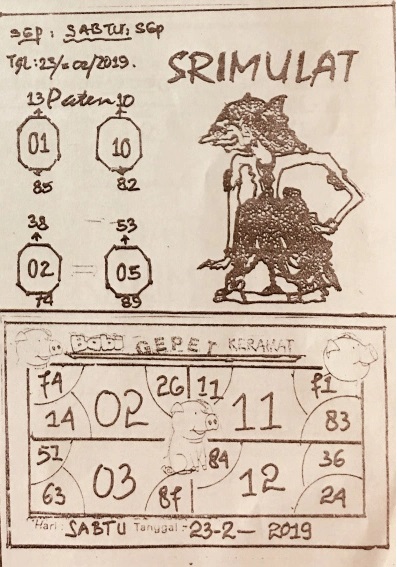 SGP : SABTU. SGP
TgL : 23/=02/2019.
SRIMULAT
13 Paten 10
01 10
85 82
38 53
02 = 05
74 89
Babi GEPET KERAMAT
74 26 11 71
14 02 11 83
51 84 36
63 03 87 12 24
Hari : SABTU Tanggal :- 23-2- 2019